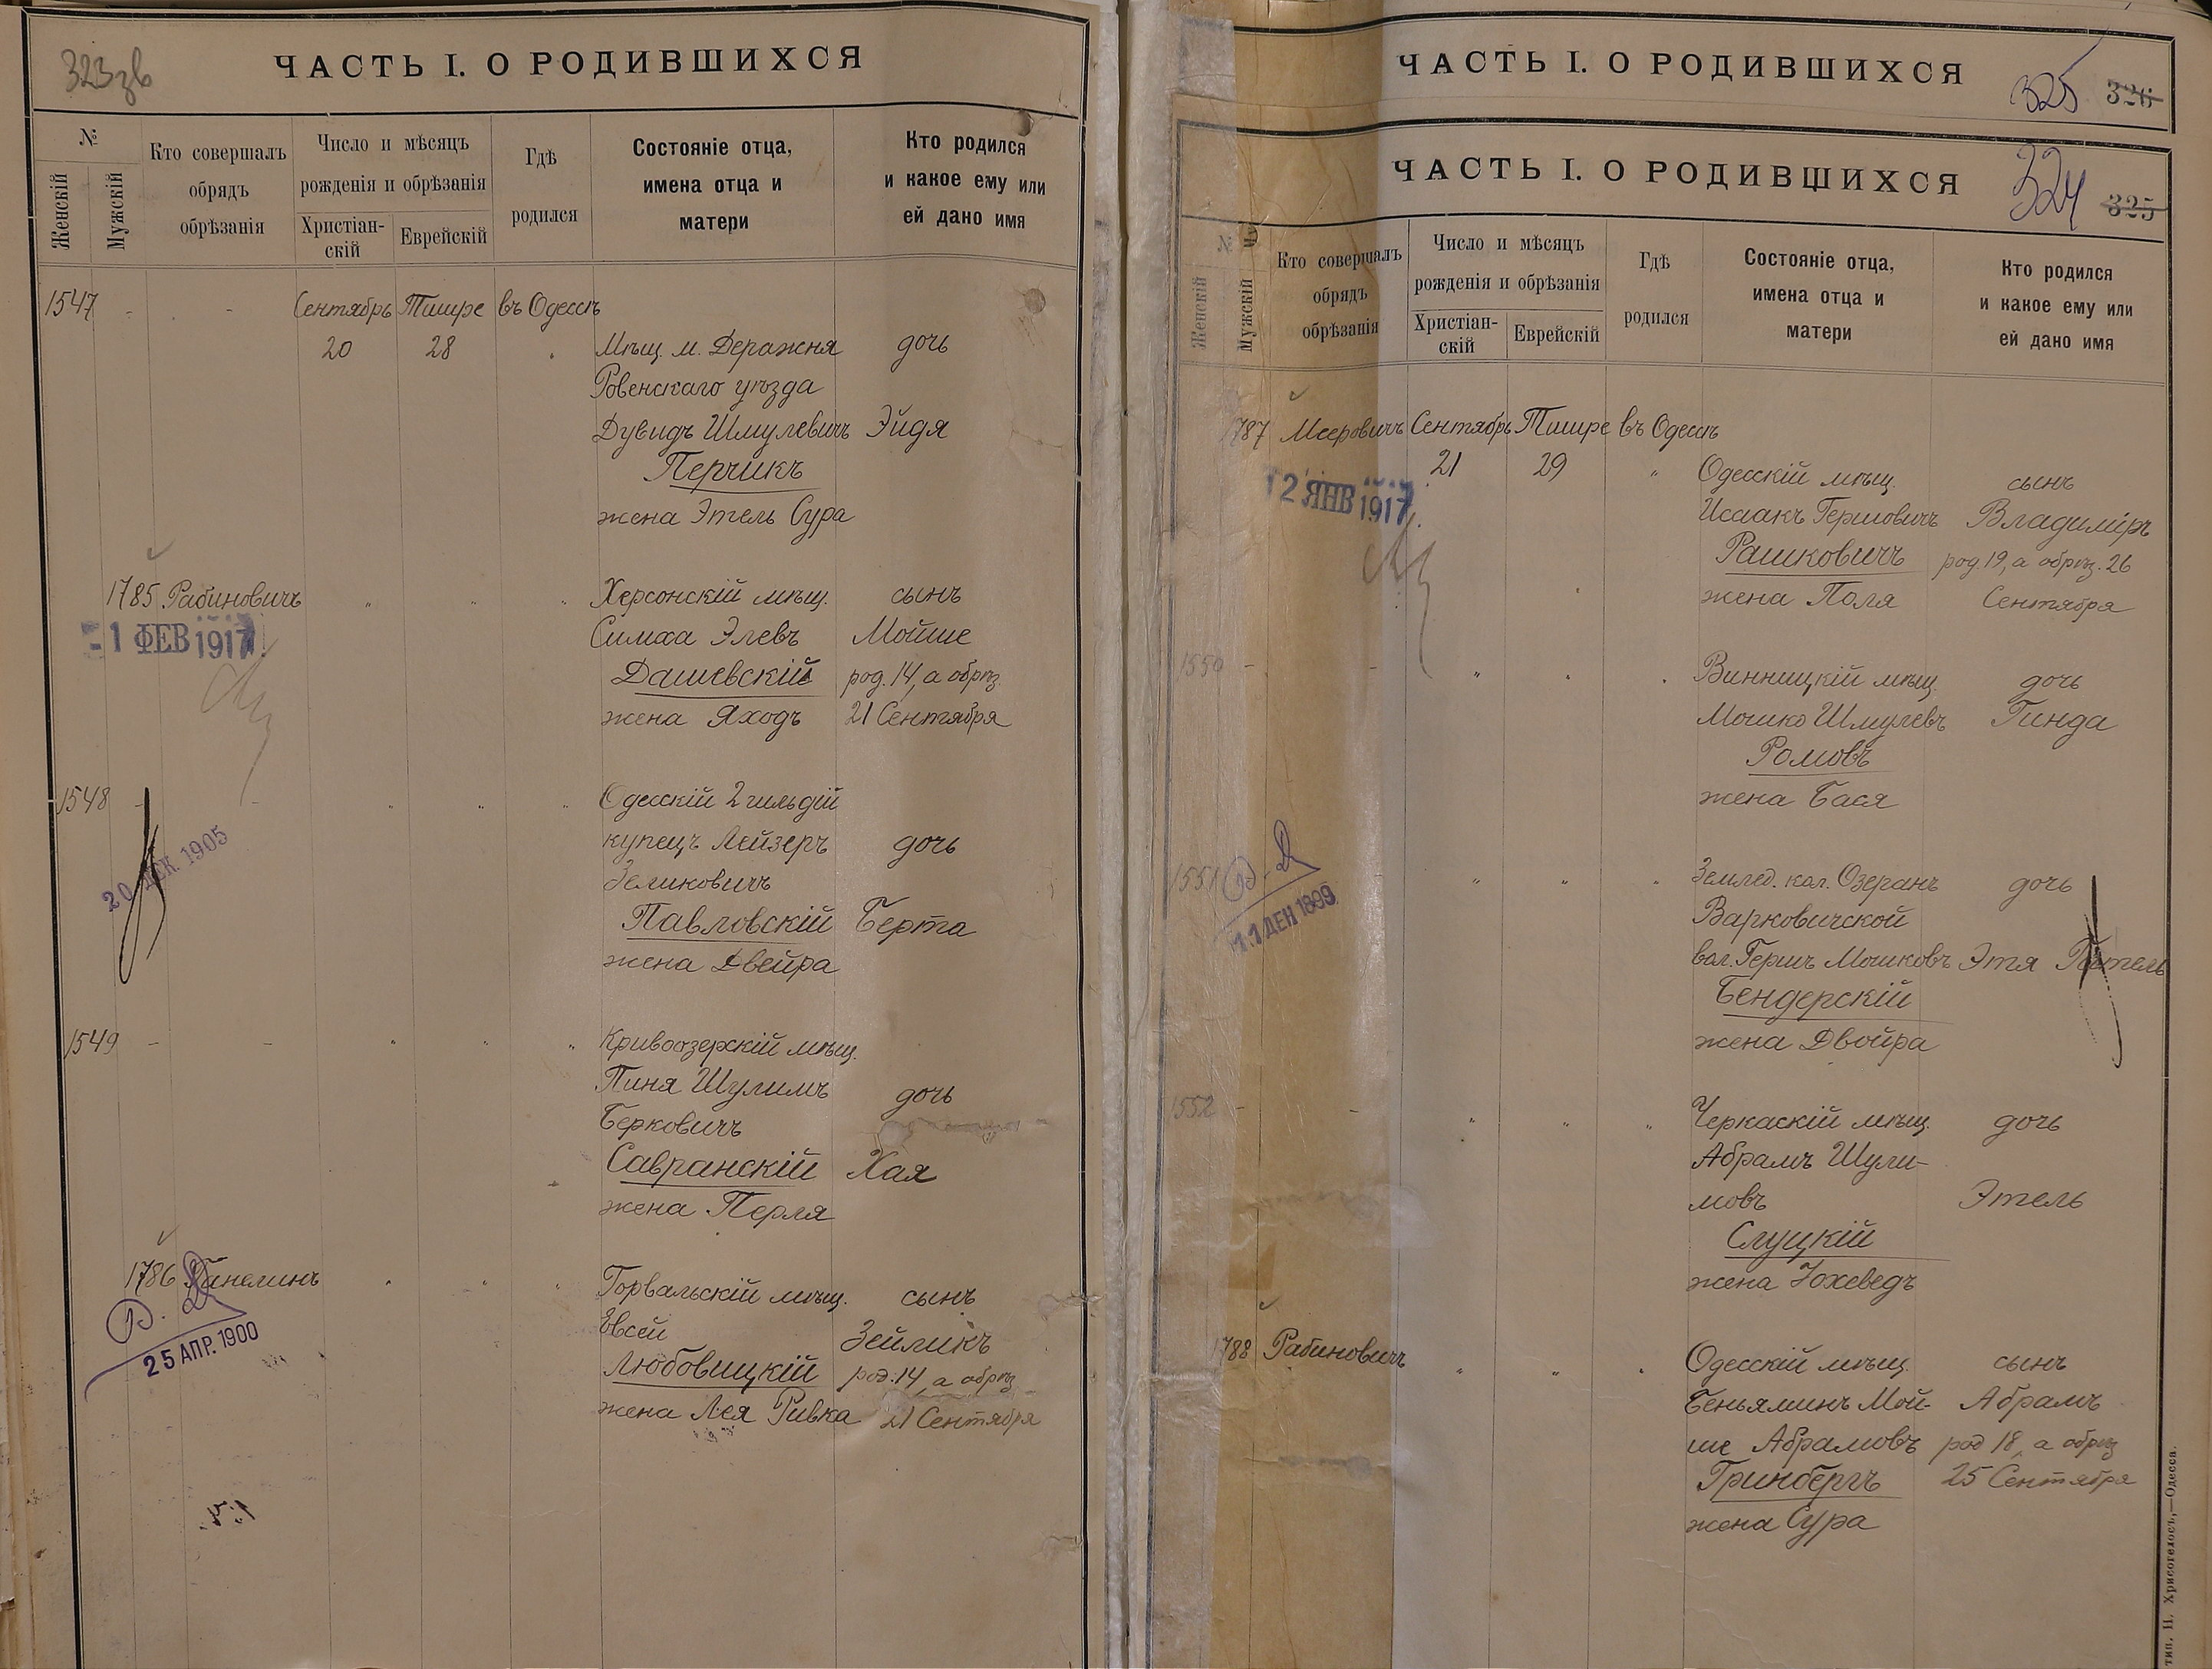 323зв
ЧАСТЬ I. О РОДИВШИХСЯ
№
Женскій
Мужскій
Кто совершалъ
обрядъ
обрѣзанія
Число и мѣсяцъ
рожденія и обрѣзанія
Христіан-
скій
Еврейскій
Гдѣ
родился
Состояніе отца,
имена отца и
матери
Кто родился
и какое ему или
ей дано имя
1547 - - Сентябрь Тишре въ Одессѣ
20 28 Мѣщ. м. Деражня дочь
Ровенскаго уѣзда
Дувидъ Шмулевичъ Эйдя
Перчикъ
жена Этель Сура
1785 Рабиновичъ " " " Херсонскій мѣщ. сынъ
- 1 ФЕВ 1917
Симха Элевъ Мойше
Дашевскій род. 14, а обрѣз.
жена Яходъ 21 Сентября
1548 - - " " " Одесскій 2 гильдій
20 ДЕК 1905
купецъ Лейзеръ дочь
Зеликовичъ
Павловскій Берта
жена Двейра
1549 - - " " " Кривоозерскій мѣщ.
Пиня Шулимъ дочь
Берковичъ
Савранскій Хая
жена Перля
1786 Ханелинъ " " " Горвальскій мѣщ. сынъ
В. Д
25 АПР. 1900
Евсей Зейликъ
Любовицкій род. 14, а обрѣз
жена Лея Ривка 21 Сентября
ЧАСТЬ I. О РОДИВШИХСЯ
325 326
ЧАСТЬ I. О РОДИВШИХСЯ
324 325
№
Женскій
Мужскій
Кто совершалъ
обрядъ
обрѣзанія
Число и мѣсяцъ
рожденія и обрѣзанія
Христіан-
скій
Еврейскій
Гдѣ
родился
Состояніе отца,
имена отца и
матери
Кто родился
и какое ему или
ей дано имя
1787 Мееровичъ Сентябрь Тишре въ Одессѣ
21 29 " Одесскій мѣщ. сынъ
12 ЯНВ 1917
Исаакъ Гершовичъ Владиміръ
Рашковичъ род. 19, а обрѣз. 26
жена Поля Сентября
1550 - - " " " Винницкій мѣщ. дочь
Мошко Шмулевъ Гинда
Ромовъ
жена Бася
1551 В. Д " " " Землед. кол. Озеранъ дочь
11 ДЕК 1899
Варковичской
вол. Гершъ Мошковъ Этя
Бендерскій
жена Двойра
1552 - - " " " Черкаскій мѣщ. дочь
Абрамъ Шули-
мовъ Этель
Слуцкій
жена Іохеведъ
1788 Рабиновичъ " " " Одесскій мѣщ. сынъ
Беньяминъ Мой- Абрамъ
ше Абрамовъ род 18, а обрѣз
Гринбергъ 25 Сентября
жена Сура
тип. П. Хрисогелосъ,—Одесса.